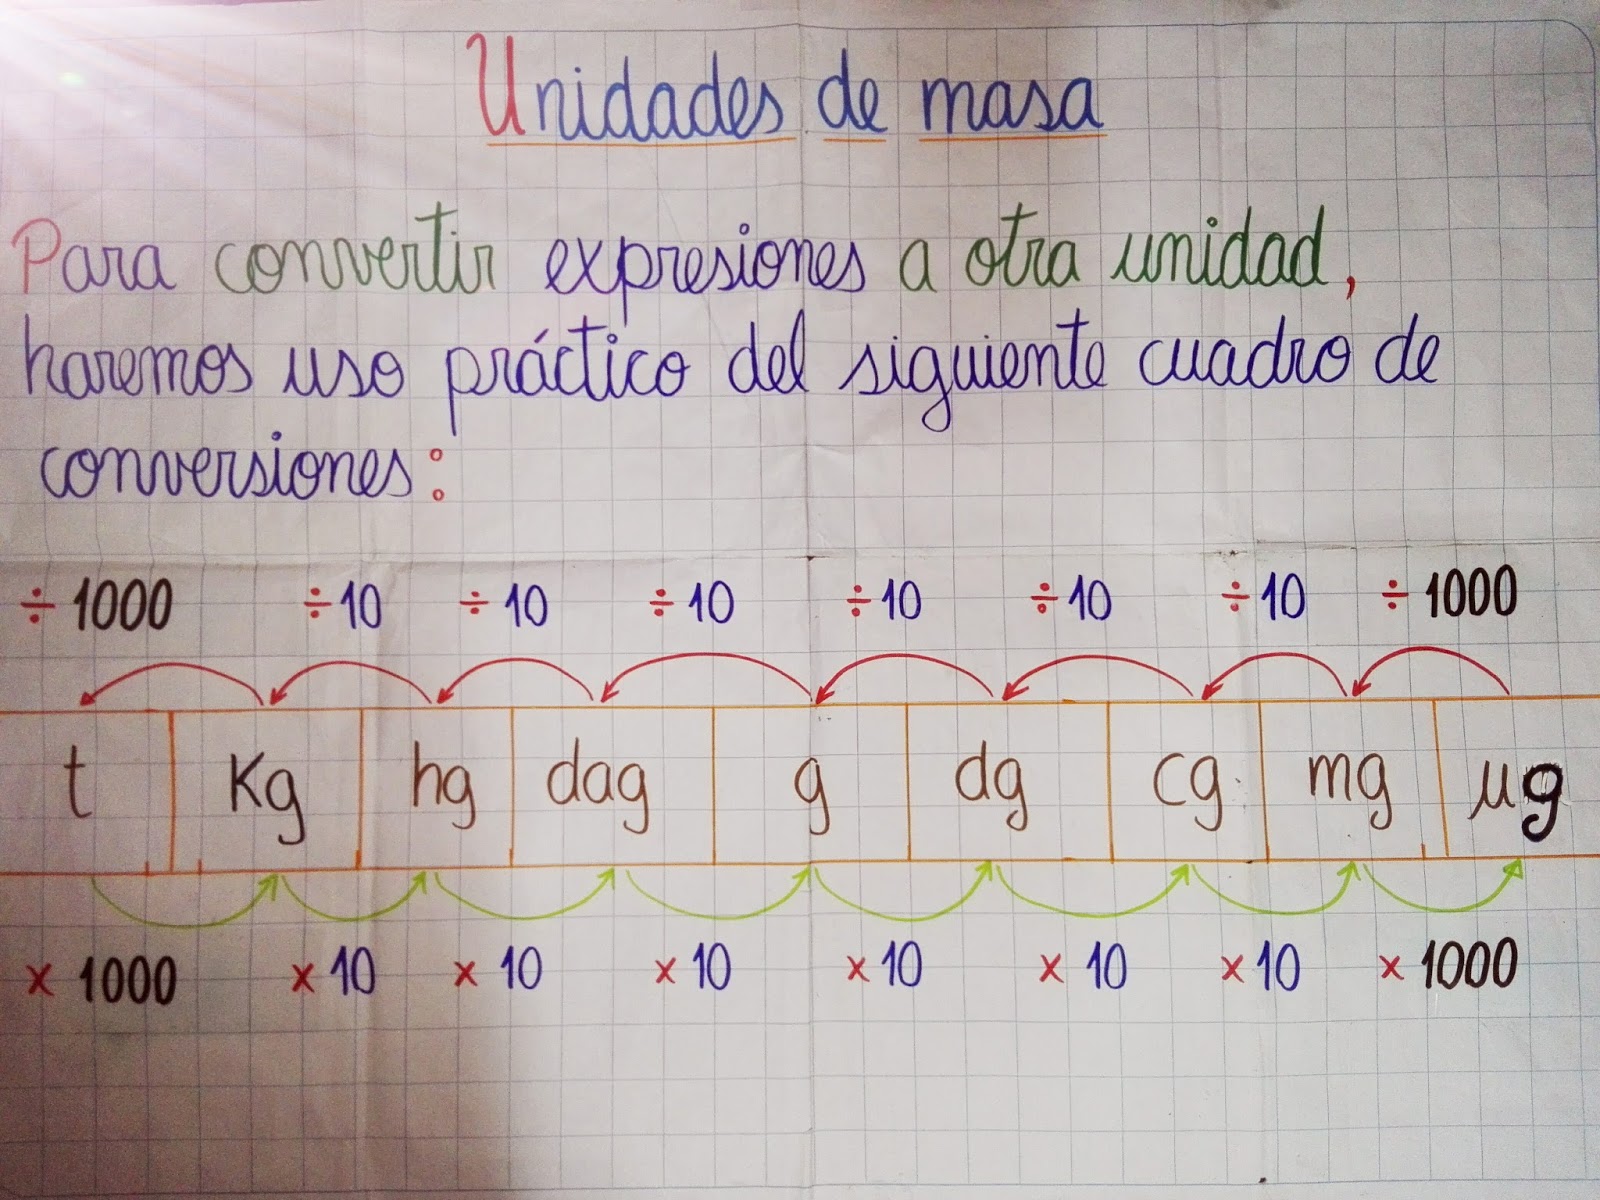 Unidades de masa
Para convertir expresiones a otra unidad,
haremos uso práctico del siguiente cuadro de
conversiones:
÷ 1000 ÷ 10 ÷ 10 ÷ 10 ÷ 10 ÷ 10 ÷ 10 ÷ 1000
t Kg hg dag g dg cg mg µg
x 1000 x 10 x 10 x 10 x 10 x 10 x 10 x 1000